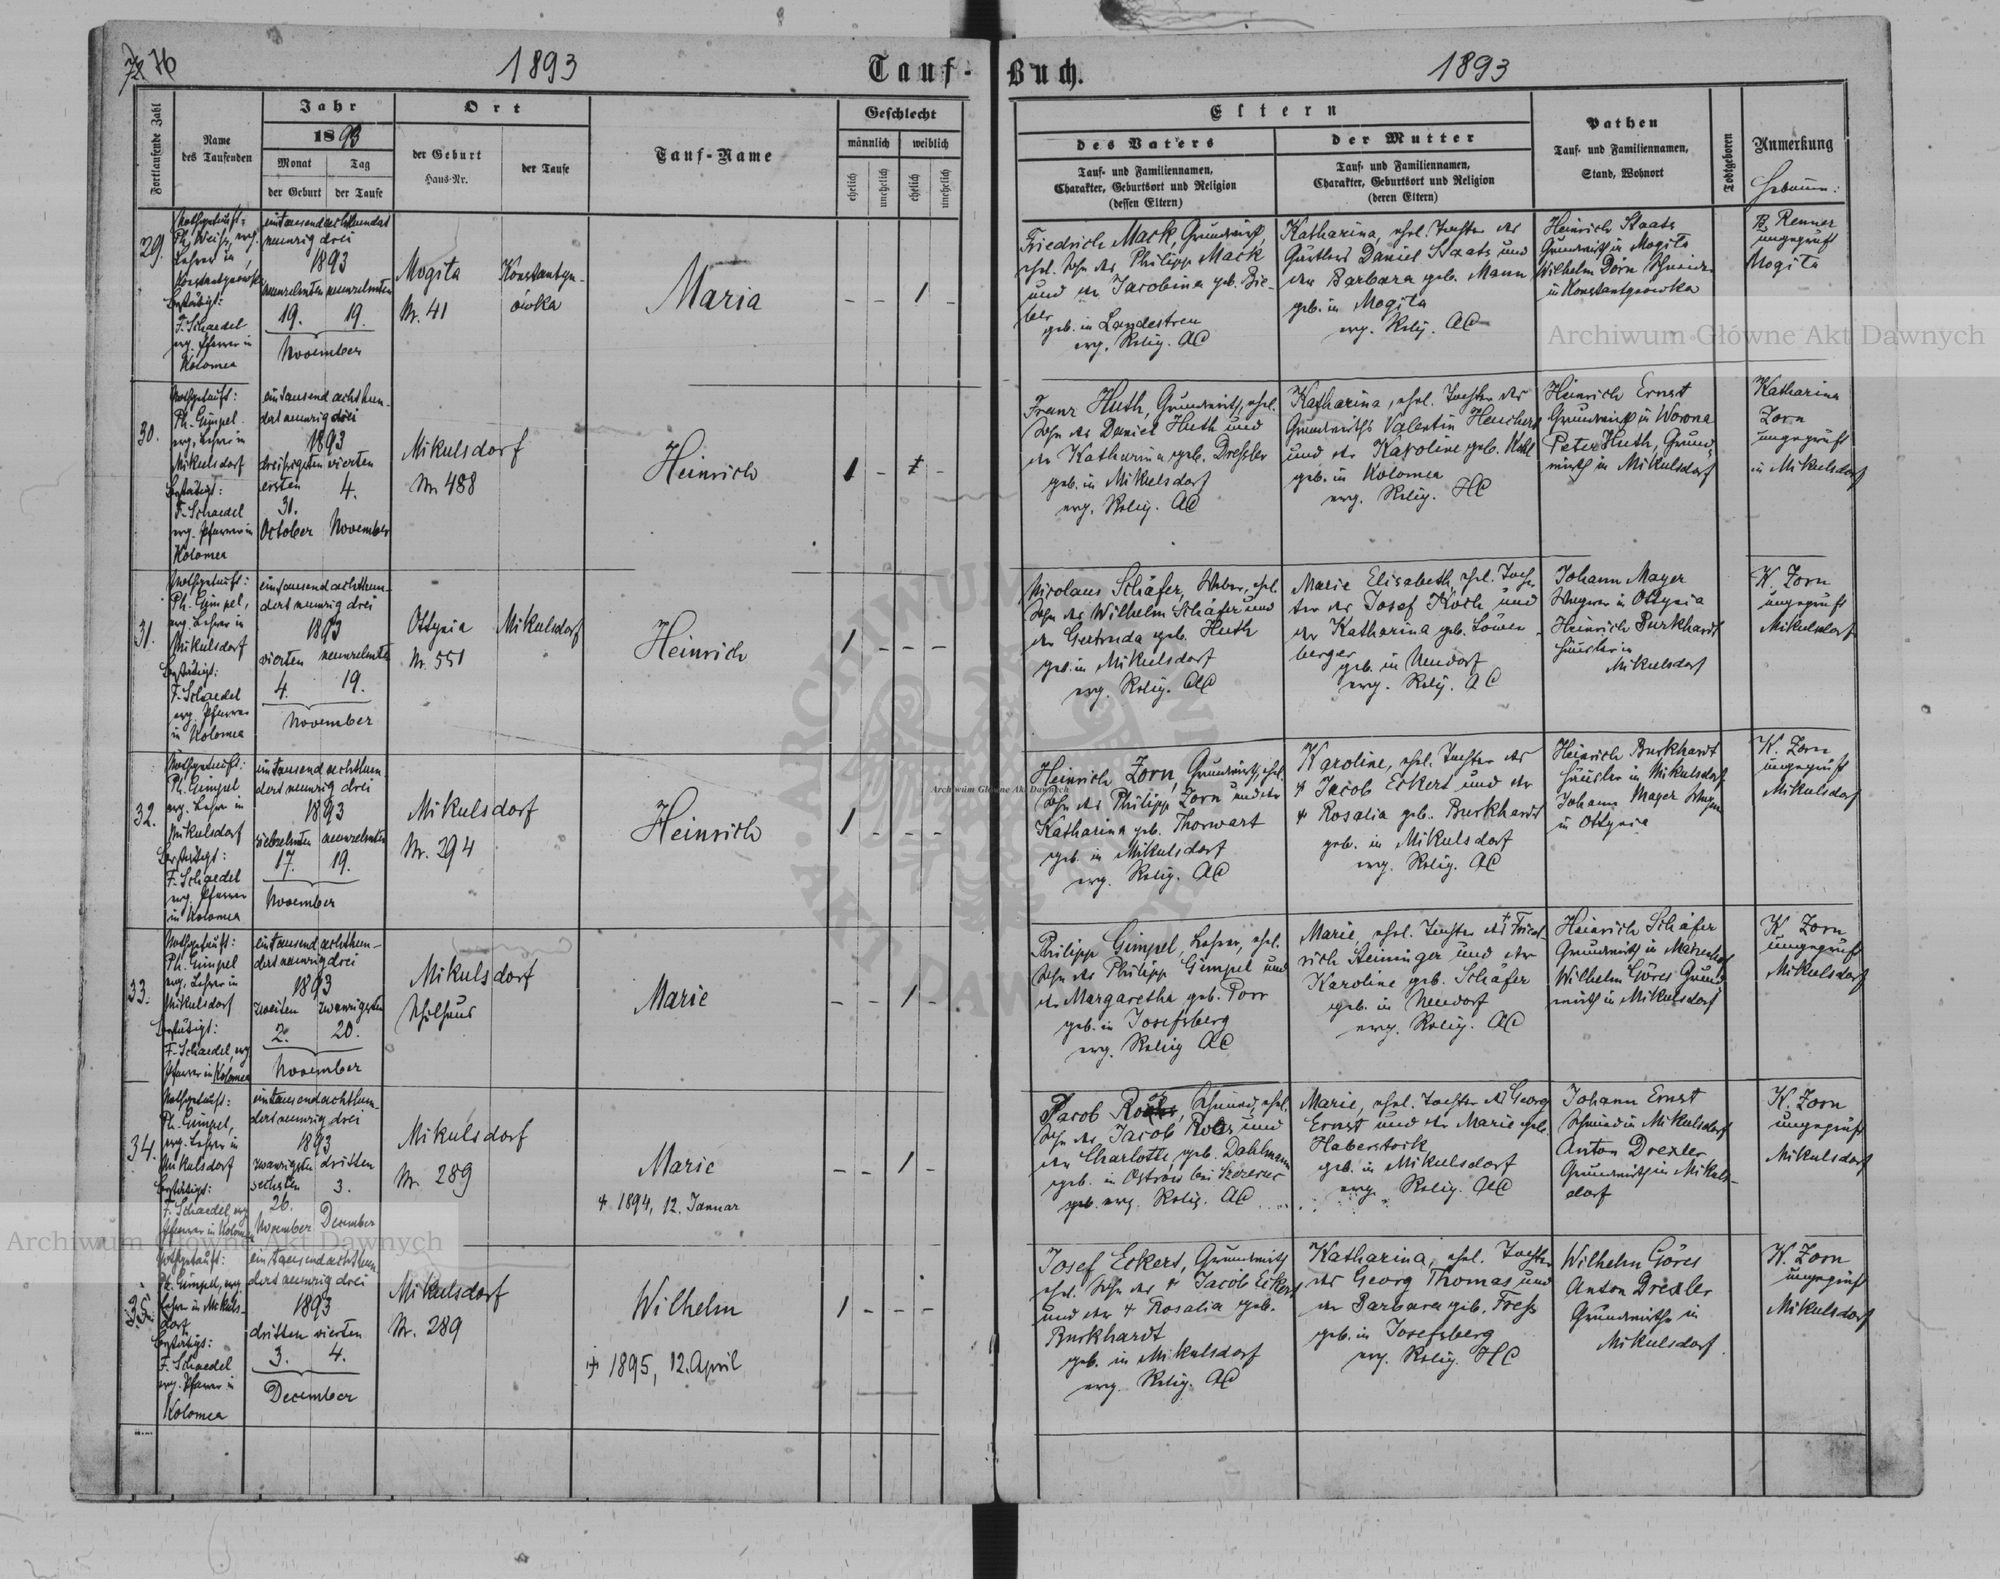 76
1893
Tauf-Buch.
1893
Fortlaufende Zahl
Name
des Taufenden
Jahr
1893
Monat Tag
der Geburt der Taufe
Ort
der Geburt
Haus-Nr.
der Taufe
Tauf-Name
Geschlecht
männlich weiblich
ehelich unehelich ehelich unehelich
Eltern
des Vaters
Tauf- und Familiennamen,
Charakter, Geburtsort und Religion
(dessen Eltern)
der Mutter
Tauf- und Familiennamen,
Charakter, Geburtsort und Religion
(deren Eltern)
Pathen
Tauf- und Familiennamen,
Stand, Wohnort
Todtgeboren
Anmerkung
Hebamme:
29.
Nothgetauft:
Ph. Weiss, evg.
Lehrer in
Konstantynówka
Bestätigt:
F. Schaedel
evg. Pfarrer in
Kolomea
eintausendachthundert
neunzig drei
1893
neunzehnten neunzehnten
19. 19.
November
Mogiła
Nr. 41
Konstantyn-
ówka
Maria
- - 1 -
Friedrich Mack, Grundwirth,
ehel. Sohn des Philipp Mack
und der Jacobina geb. Bie-
ber
geb. in Landestreu
evg. Relig. AC
Katharina, ehel. Tochter des
Gärtlers Daniel Staats und
der Barbara geb. Mann
geb. in Mogiła
evg. Relig. AC
Heinrich Staats
Grundwirth in Mogiła
Wilhelm Dörn Schneider
in Konstantynówka
Renner
ungeprüft
Mogiła
30.
Nothgetauft:
Ph. Gimpel
evg. Lehrer in
Mikulsdorf
Bestätigt:
F. Schaedel
evg. Pfarrer in
Kolomea
eintausend achthun-
dert neunzig drei
1893
dreissigsten vierten
ersten 4.
31.
October November
Mikulsdorf
Nr. 488
Heinrich
1 - -
Franz Huth, Grundwirth, ehel.
Sohn des Daniel Huth und
der Katharina geb. Dressler
geb. in Mikulsdorf
evg. Relig. AC
Katharina, ehel. Tochter des
Grundwirths Valentin Henchert
und der Karoline geb. Kohl
geb. in Kolomea
evg. Relig. HC
Heinrich Ernst
Grundwirth in Worona
Peter Huth, Grund-
wirth in Mikulsdorf
Katharina
Zorn
ungeprüft
in Mikulsdorf
31.
Nothgetauft:
Ph. Gimpel,
evg. Lehrer in
Mikulsdorf
Bestätigt:
F. Schaedel
evg. Pfarrer
in Kolomea
eintausend achthun-
dert neunzig drei
1893
vierten neunzehnten
4. 19.
November
Ottynia
Nr. 551
Mikulsdorf
Heinrich
1 - - -
Nicolaus Schäfer, Weber, ehel.
Sohn des Wilhelm Schäfer und
der Gertruda geb. Huth
geb. in Mikulsdorf
evg. Relig. AC
Marie Elisabeth, ehel. Toch-
ter des Josef Koch und
der Katharina geb. Löwen-
berger
geb. in Neudorf
evg. Relig. AC
Johann Mayer
Wagner in Ottynia
Heinrich Burkhardt
Häusler in
Mikulsdorf
K. Zorn
ungeprüft
Mikulsdorf
32.
Nothgetauft:
Ph. Gimpel
evg. Lehrer in
Mikulsdorf
Bestätigt:
F. Schaedel
evg. Pfarrer
in Kolomea
eintausend achthun-
dert neunzig drei
1893
siebzehnten neunzehnten
17. 19.
November
Mikulsdorf
Nr. 294
Heinrich
1 - - -
Heinrich Zorn, Grundwirth, ehel.
Sohn des Philipp Zorn und der
Katharina geb. Thorwart
geb. in Mikulsdorf
evg. Relig. AC
Karoline, ehel. Tochter des
† Jacob Eckert und der
† Rosalia geb. Burkhardt
geb. in Mikulsdorf
evg. Relig. AC
Heinrich Burkhardt
Häusler in Mikulsdorf
Johann Mayer Wagner
in Ottynia
K. Zorn
ungeprüft
Mikulsdorf
33.
Nothgetauft:
Ph. Gimpel
evg. Lehrer in
Mikulsdorf
Bestätigt:
F. Schaedel, evg.
Pfarrer in Kolomea
eintausend achthun-
dert neunzig drei
1893
zweiten zwanzigsten
2. 20.
November
Mikulsdorf
Schulhaus
Marie
- - 1 -
Philipp Gimpel, Lehrer, ehel.
Sohn des Philipp Gimpel und
der Margaretha geb. Porr
geb. in Josefsberg
evg. Relig AC
Marie, ehel. Tochter des † Fried-
rich Reminger und der
Karoline geb. Schäfer
geb. in Neudorf
evg. Relig. AC
Heinrich Schäfer
Grundwirth in
Wilhelm Göres Grund-
wirth in Mikulsdorf
K. Zorn
ungeprüft
Mikulsdorf
34.
Nothgetauft:
Ph. Gimpel,
evg. Lehrer in
Mikulsdorf
Bestätigt:
F. Schaedel, evg
Pfarrer in Kolomea
eintausend achthun-
dert neunzig drei
1893
zwanzigsten dritten
sechsten 3.
26.
November December
Mikulsdorf
Nr. 289
Marie
† 1894, 12. Januar
- - 1 -
Jacob, Schmied, ehel.
Sohn des Jacob und
der Charlotte, geb. Dahlmann
geb. in Ostrów bei Szczerzec
geb. evg. Relig. AC
Marie, ehel. Tochter des Georg
Ernst und der Marie geb.
Haberstock
geb. in Mikulsdorf
evg. Relig. AC
Johann Ernst
Schmied in Mikulsdorf
Anton Drexler
Grundwirth in Mikuls-
dorf
K. Zorn
ungeprüft
Mikulsdorf
35.
Nothgetauft:
Ph. Gimpel, evg.
Lehrer in Mikuls-
dorf
Bestätigt:
F. Schaedel
evg. Pfarrer in
Kolomea
eintausend achthun-
dert neunzig drei
1893
dritten vierten
3. 4.
December
Mikulsdorf
Nr. 289
Wilhelm
† 1895, 12. April
1 - - -
Josef Eckert, Grundwirth
ehel. Sohn des † Jacob Eckert
und der † Rosalia geb.
Burkhardt
geb. in Mikulsdorf
evg. Relig. AC
Katharina, ehel. Tochter
des Georg Thomas und
der Barbara geb. Fress
geb. in Josefsberg
evg. Relig. HC
Wilhelm Göres
Anton Drexler
Grundwirthe in
Mikulsdorf
K. Zorn
ungeprüft
Mikulsdorf
Archiwum Główne Akt Dawnych
Archiwum Główne Akt Dawnych
Archiwum Główne Akt Dawnych